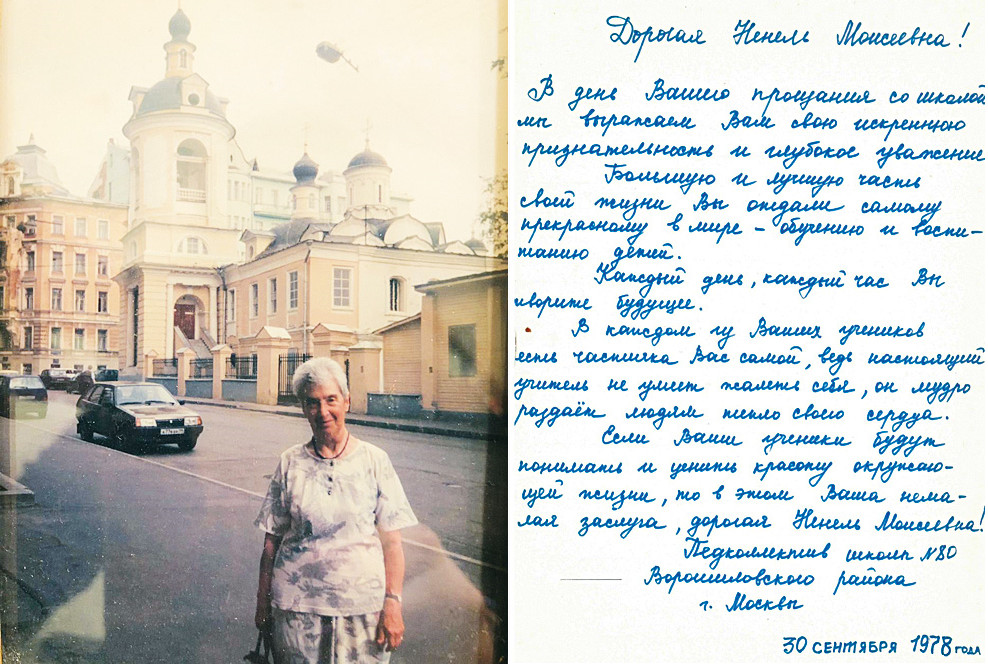 Дорогая Ненель Моисеевна!
В день Вашего прощания со школой
мы выражаем Вам свою искреннюю
признательность и глубокое уважение
Большую и лучшую часть
своей жизни Вы отдали самому
прекрасному в мире – обучению и воспи-
танию детей.
Каждый день, каждый час Вы
творите будущее.
В каждом из Ваших учеников
есть частичка Вас самой, ведь настоящий
учитель не умеет жалеть себя, он мудро
раздаёт людям тепло своего сердца.
Если Ваши ученики будут
понимать и ценить красоту окружаю-
щей жизни, то в этом Ваша нема-
лая заслуга, дорогая Ненель Моисеевна!
Педколлектив школы N80
Ворошиловского района
г. Москвы
30 СЕНТЯБРЯ 1978 ГОДА